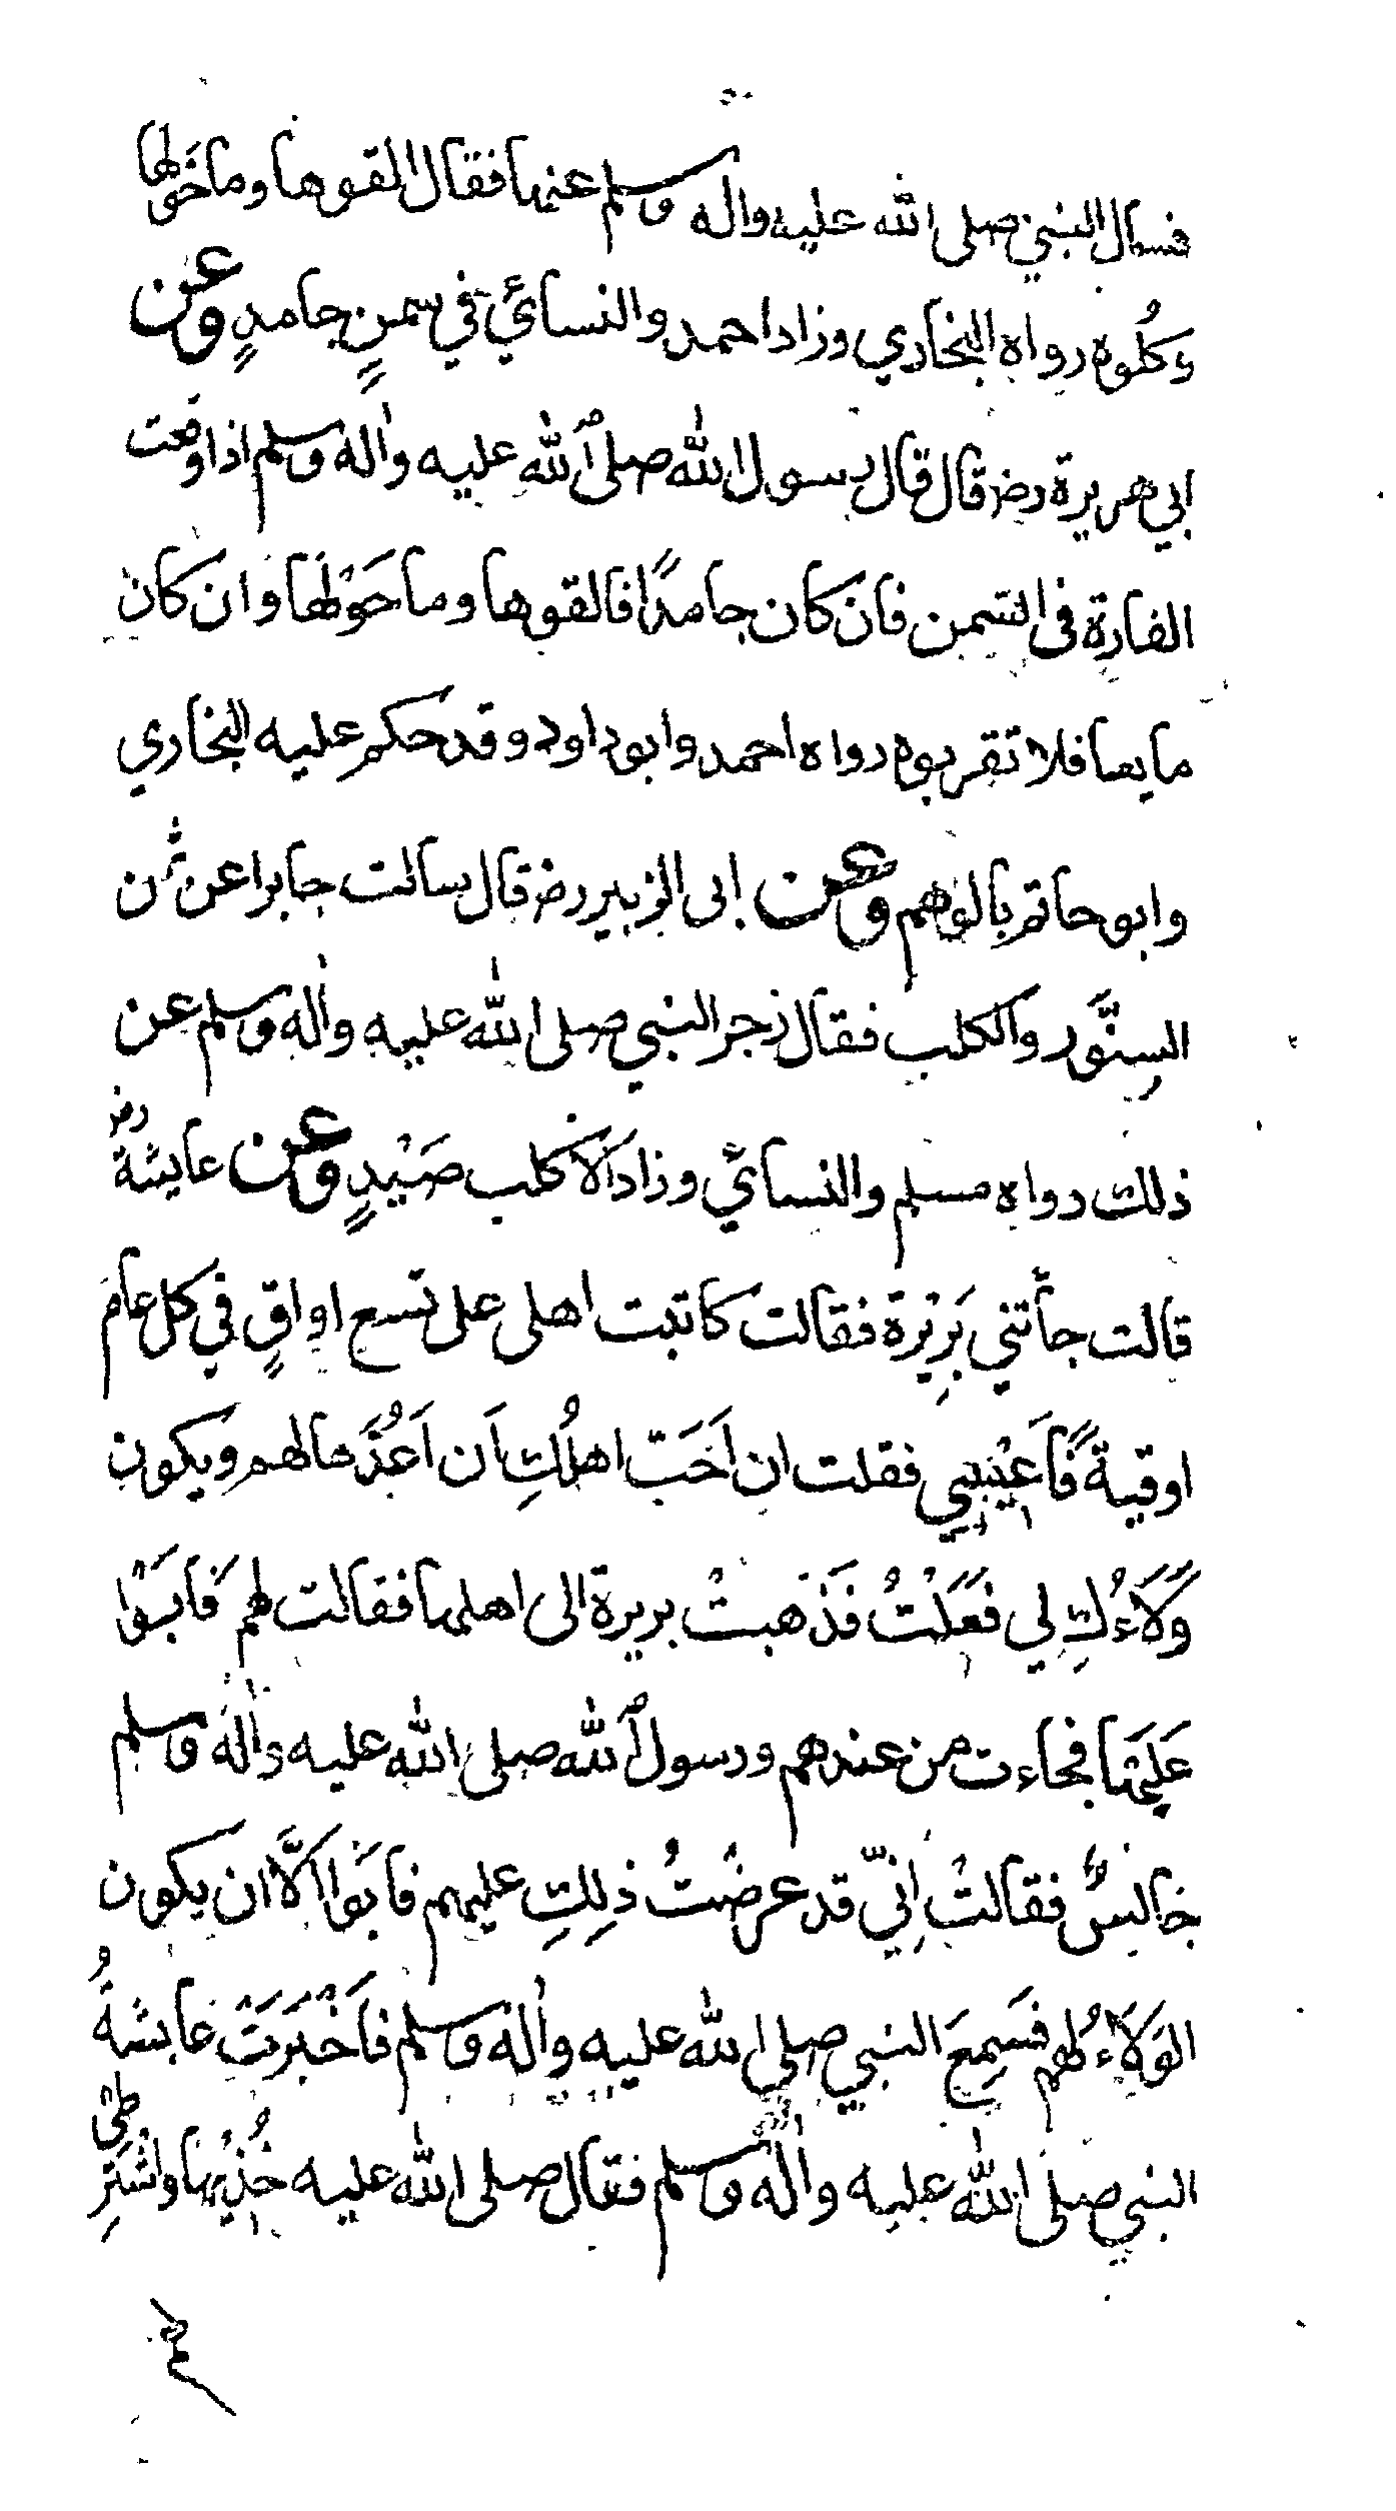 فسال النبي صلى الله عليه واله وسلم عنها فقال القوها وما حَولها
وكُلوه رواه البخاري وزاد احمد والنسائي في سمنٍ جامدٍ وعن
ابي هريرة رضـ قال قال رسول الله صلى الله عليه واله وسلم اذا وقعت
الفارة فى السمن فان كان جامدًا فالقوها وما حَوْلَها وان كان
مايعا فلا تقربوه رواه احمد وابو داود وقد حكم عليه البخاري
وابو حاتم بالوهم وعن ابى الزبير رضـ قال سالت جابرا عن ثمن
السِنَّور والكلب فقال زجر النبي صلى الله عليه واله وسلم عن
ذلك رواه مسلم والنسائي وزاد الا كلب صَيْدٍ وعن عايشة رضـ
قالت جأتني بَرِيْرة فقالت كاتبت اهلى على تسع اواقٍ في كل عام
اوقية فَاَعْيْنيي فقلت ان اَحَبَّ اهلُكِ اَن اَعُدَّها لهم ويكون
وَلَاءُكِ لي فعَلْتُ فَذَهبتْ بريرة الى اهلها فقالت لهم فَابَوْا
عَلَيْهَا فجاءت من عندهم ورسول الله صلى الله عليه واله وسلم
جالسٌ فقالتْ اِنّي قد عرضْتُ ذلِكِ عليهم فابَوْا الَّا ان يكون
الوَلَاءُ لهم فسَمِعَ النبي صلى الله عليه واله وسلم فاَخْبَرَتْ عايشةُ
النبي صلى الله عليه واله وسلم فقال صلى الله عليه خُذِيْها واشتَرِطى